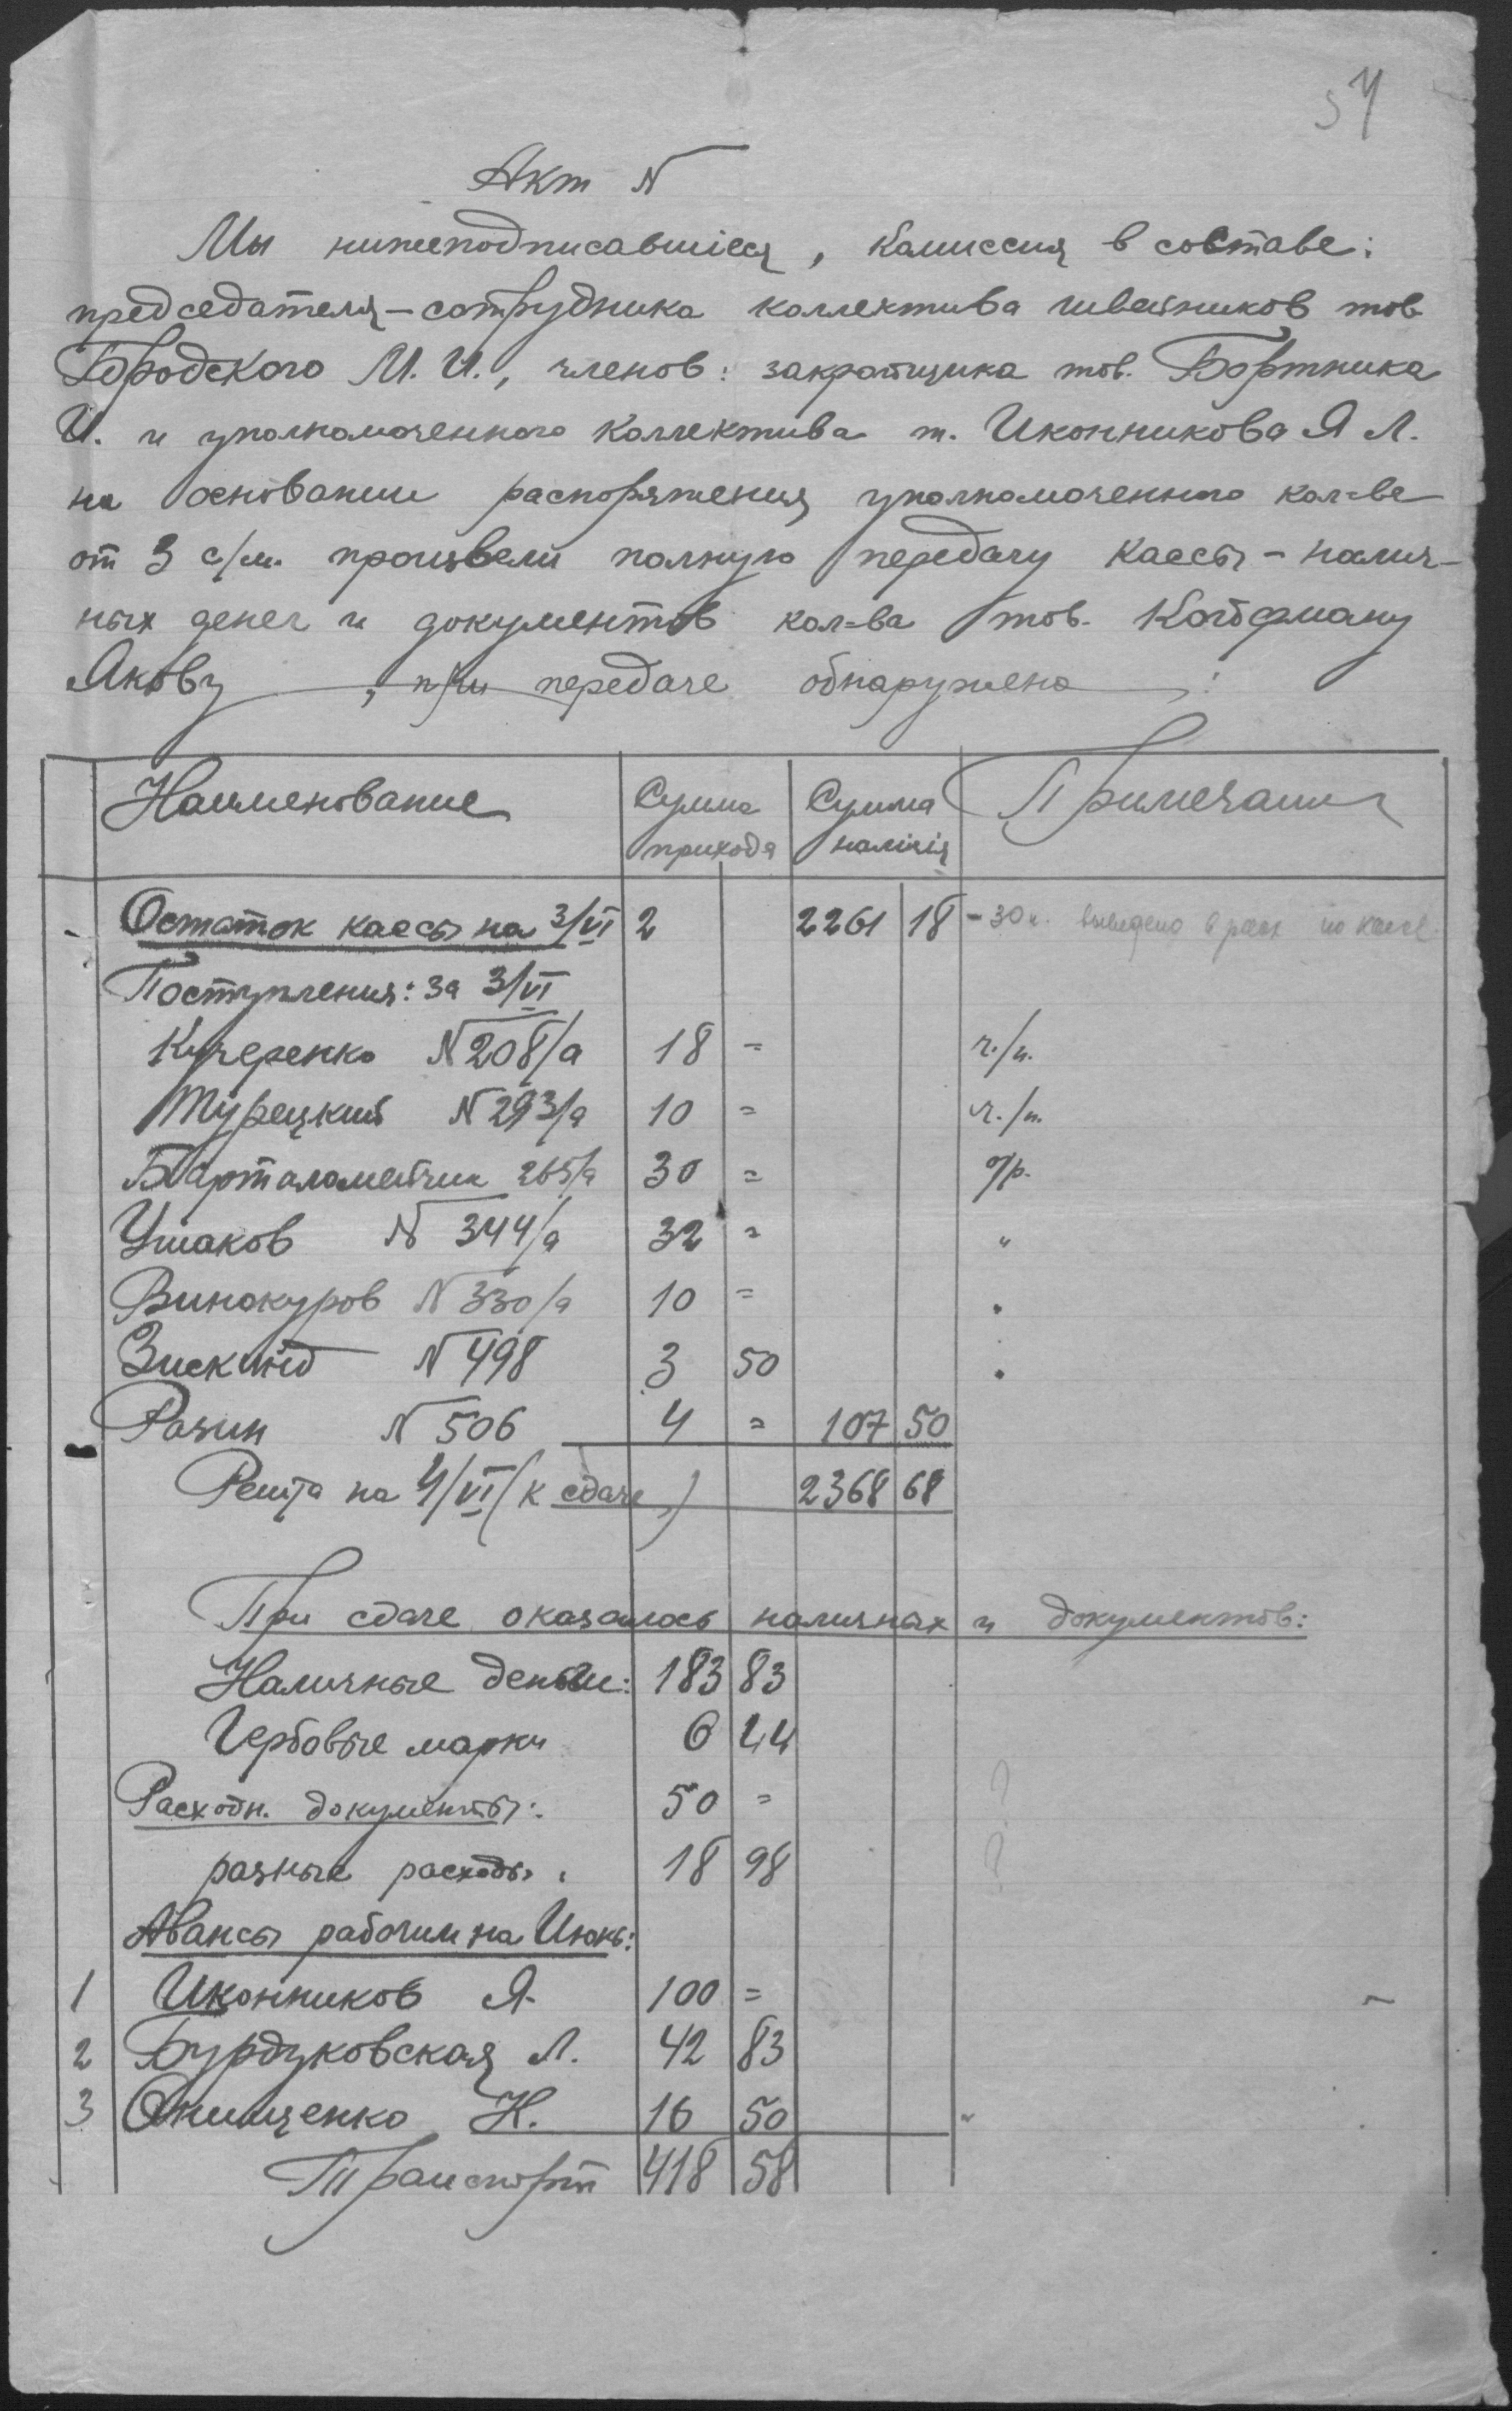 57
Акт N
Мы нижеподписавшіеся, Комиссия в составе:
председателя – сотрудника коллектива швейников тов.
Бродского М. И., членов: закройщика тов. Бортника
И. и уполномоченного коллектива т. Иконникова Я Л.
на основании распоряжения уполномоченного кол=ва
от 3 с/м. произвели полную передачу кассы – налич-
ных денег и документов кол=ва тов. Койфману
Якову, при передаче обнаружено:
Наименование Сумма прихода Сумма налічія Примечание
Остаток кассы на 3/VI 2 2261 18 – 30 к. выведено в расх по кассе
Поступления: за 3/VI
Кучеренко N 208/а 18 = ч./н.
Турецкий N 293/а 10 = ч./н.
Барталомейчик 265/а 30 = о/р.
Ушаков N 344/а 32 = "
Винокуров N 330/а 10 = "
Зискинд N 498 3 50 "
Разин N 506 4 = 107 50
Решта на 4/VI (к сдаче) 2368 68
При сдаче оказалось наличных и документов:
Наличные деньги: 183 83
Гербовые марки 6 44
Расходн. документы: 50 = ?
разные расходы. 18 98 ?
Авансы рабочим на Июнь:
1 Иконников Я. 100 =
2 Бурдуковская Л. 42 83
3 Онищенко Н. 16 50
Транспорт 418 58